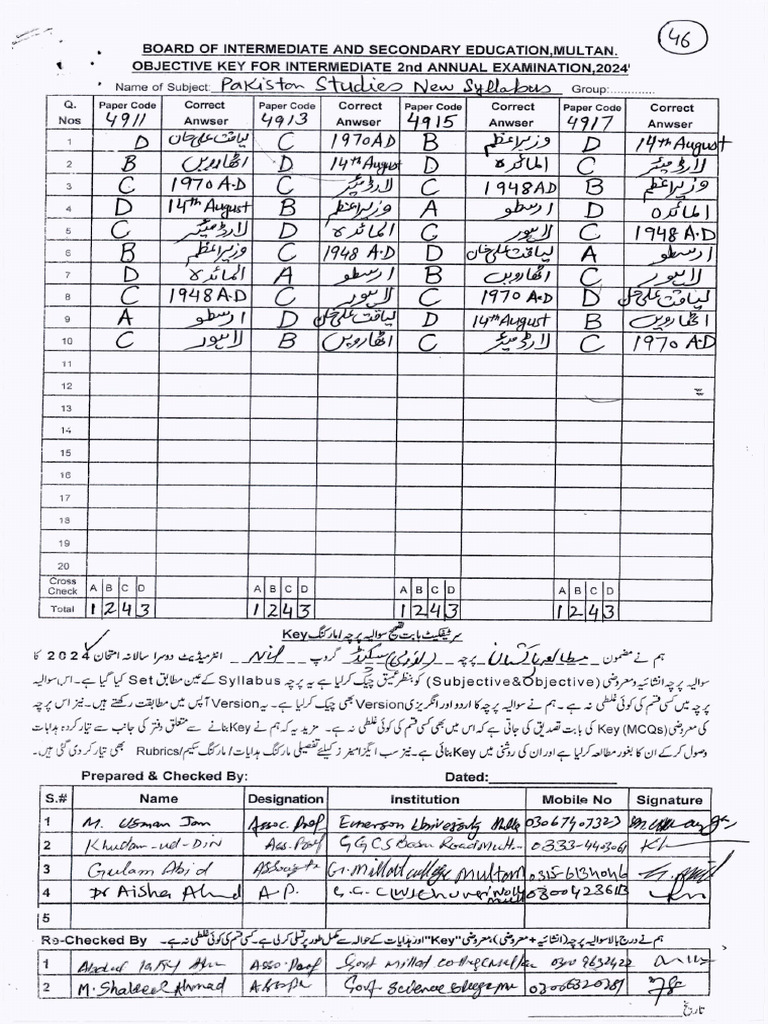 46
BOARD OF INTERMEDIATE AND SECONDARY EDUCATION,MULTAN.
OBJECTIVE KEY FOR INTERMEDIATE 2nd ANNUAL EXAMINATION,2024'
Name of Subject: Pakistan Studies New Syllabus Group:............
Q. Nos Paper Code 4911 Correct Anwser Paper Code 4913 Correct Anwser Paper Code 4915 Correct Anwser Paper Code 4917 Correct Anwser
1 D لیاقت علی خان C 1970 AD B وزیراعظم D 14th August
2 B اٹھارویں D 14th August D المائدہ C لارڈ میئر
3 C 1970 A.D C لارڈ میئر C 1948 AD B وزیراعظم
4 D 14th August B وزیراعظم A ارسطو D المائدہ
5 C لارڈ میئر D المائدہ C لاہور C 1948 A.D
6 B وزیراعظم C 1948 A.D D لیاقت علی خان A ارسطو
7 D المائدہ A ارسطو B اٹھارویں C لاہور
8 C 1948 A.D C لاہور C 1970 A.D D لیاقت علی خان
9 A ارسطو D لیاقت علی خان D 14th August B اٹھارویں
10 C لاہور B اٹھارویں C لارڈ میئر C 1970 A.D
11
12
13
14
15
16
17
18
19
20
Cross Check A B C D A B C D A B C D A B C D
Total 1 2 4 3 1 2 4 3 1 2 4 3 1 2 4 3
سرٹیفکیٹ بابت تصحیح سوالیہ پرچہ / مارکنگ Key
ہم نے مضمون مطالعہ پاکستان پرچہ (لازمی) سیکنڈ گروپ Nil انٹرمیڈیٹ دوسرا سالانہ امتحان 2024 کا
سوالیہ پرچہ انشائیہ و معروضی (Subjective & Objective) کو بنظر عمیق چیک کر لیا ہے یہ پرچہ Syllabus کے عین مطابق Set کیا گیا ہے۔ اس سوالیہ
پرچہ میں کسی قسم کی کوئی غلطی نہ ہے۔ ہم نے سوالیہ پرچہ کا اردو اور انگریزی Version بھی چیک کر لیا ہے۔ یہ Version آپس میں مطابقت رکھتے ہیں۔ نیز اس پرچہ
کی معروضی (MCQs) Key کی بابت تصدیق کی جاتی ہے کہ اس میں بھی کسی قسم کی کوئی غلطی نہ ہے۔ مزید یہ کہ ہم نے Key بنانے سے متعلق دفتر کی جانب سے تیار کردہ ہدایات
وصول کر کے ان کا بغور مطالعہ کر لیا ہے اور ان کی روشنی میں Key بنائی ہے۔ نیز سب ایگزامینرز کیلئے تفصیلی مارکنگ ہدایات / مارکنگ سکیم / Rubrics بھی تیار کر دی گئی ہیں۔
Prepared & Checked By: Dated:
S.# Name Designation Institution Mobile No Signature
1 M. Usman Jan Assoc. Prof Emerson University 03067407323
2 Khudam-ud-Din Ass. Prof GGCS Bosan Road 0333-4403061
3 Gulam Abid Associate G. Millat college Multan
4 Dr Aisha A.P. 03004236113
5
Re-Checked By ہم نے درج بالا سوالیہ پرچہ (انشائیہ + معروضی) معروضی "Key" اور ہدایات کے حوالہ سے مکمل طور پر تسلی کر لی ہے۔ کسی قسم کی کوئی غلطی نہ ہے۔
1 Asso. Prof Govt Millat college Multan
2 M. Shakeel Ahmad Govt Science College
تاریخ